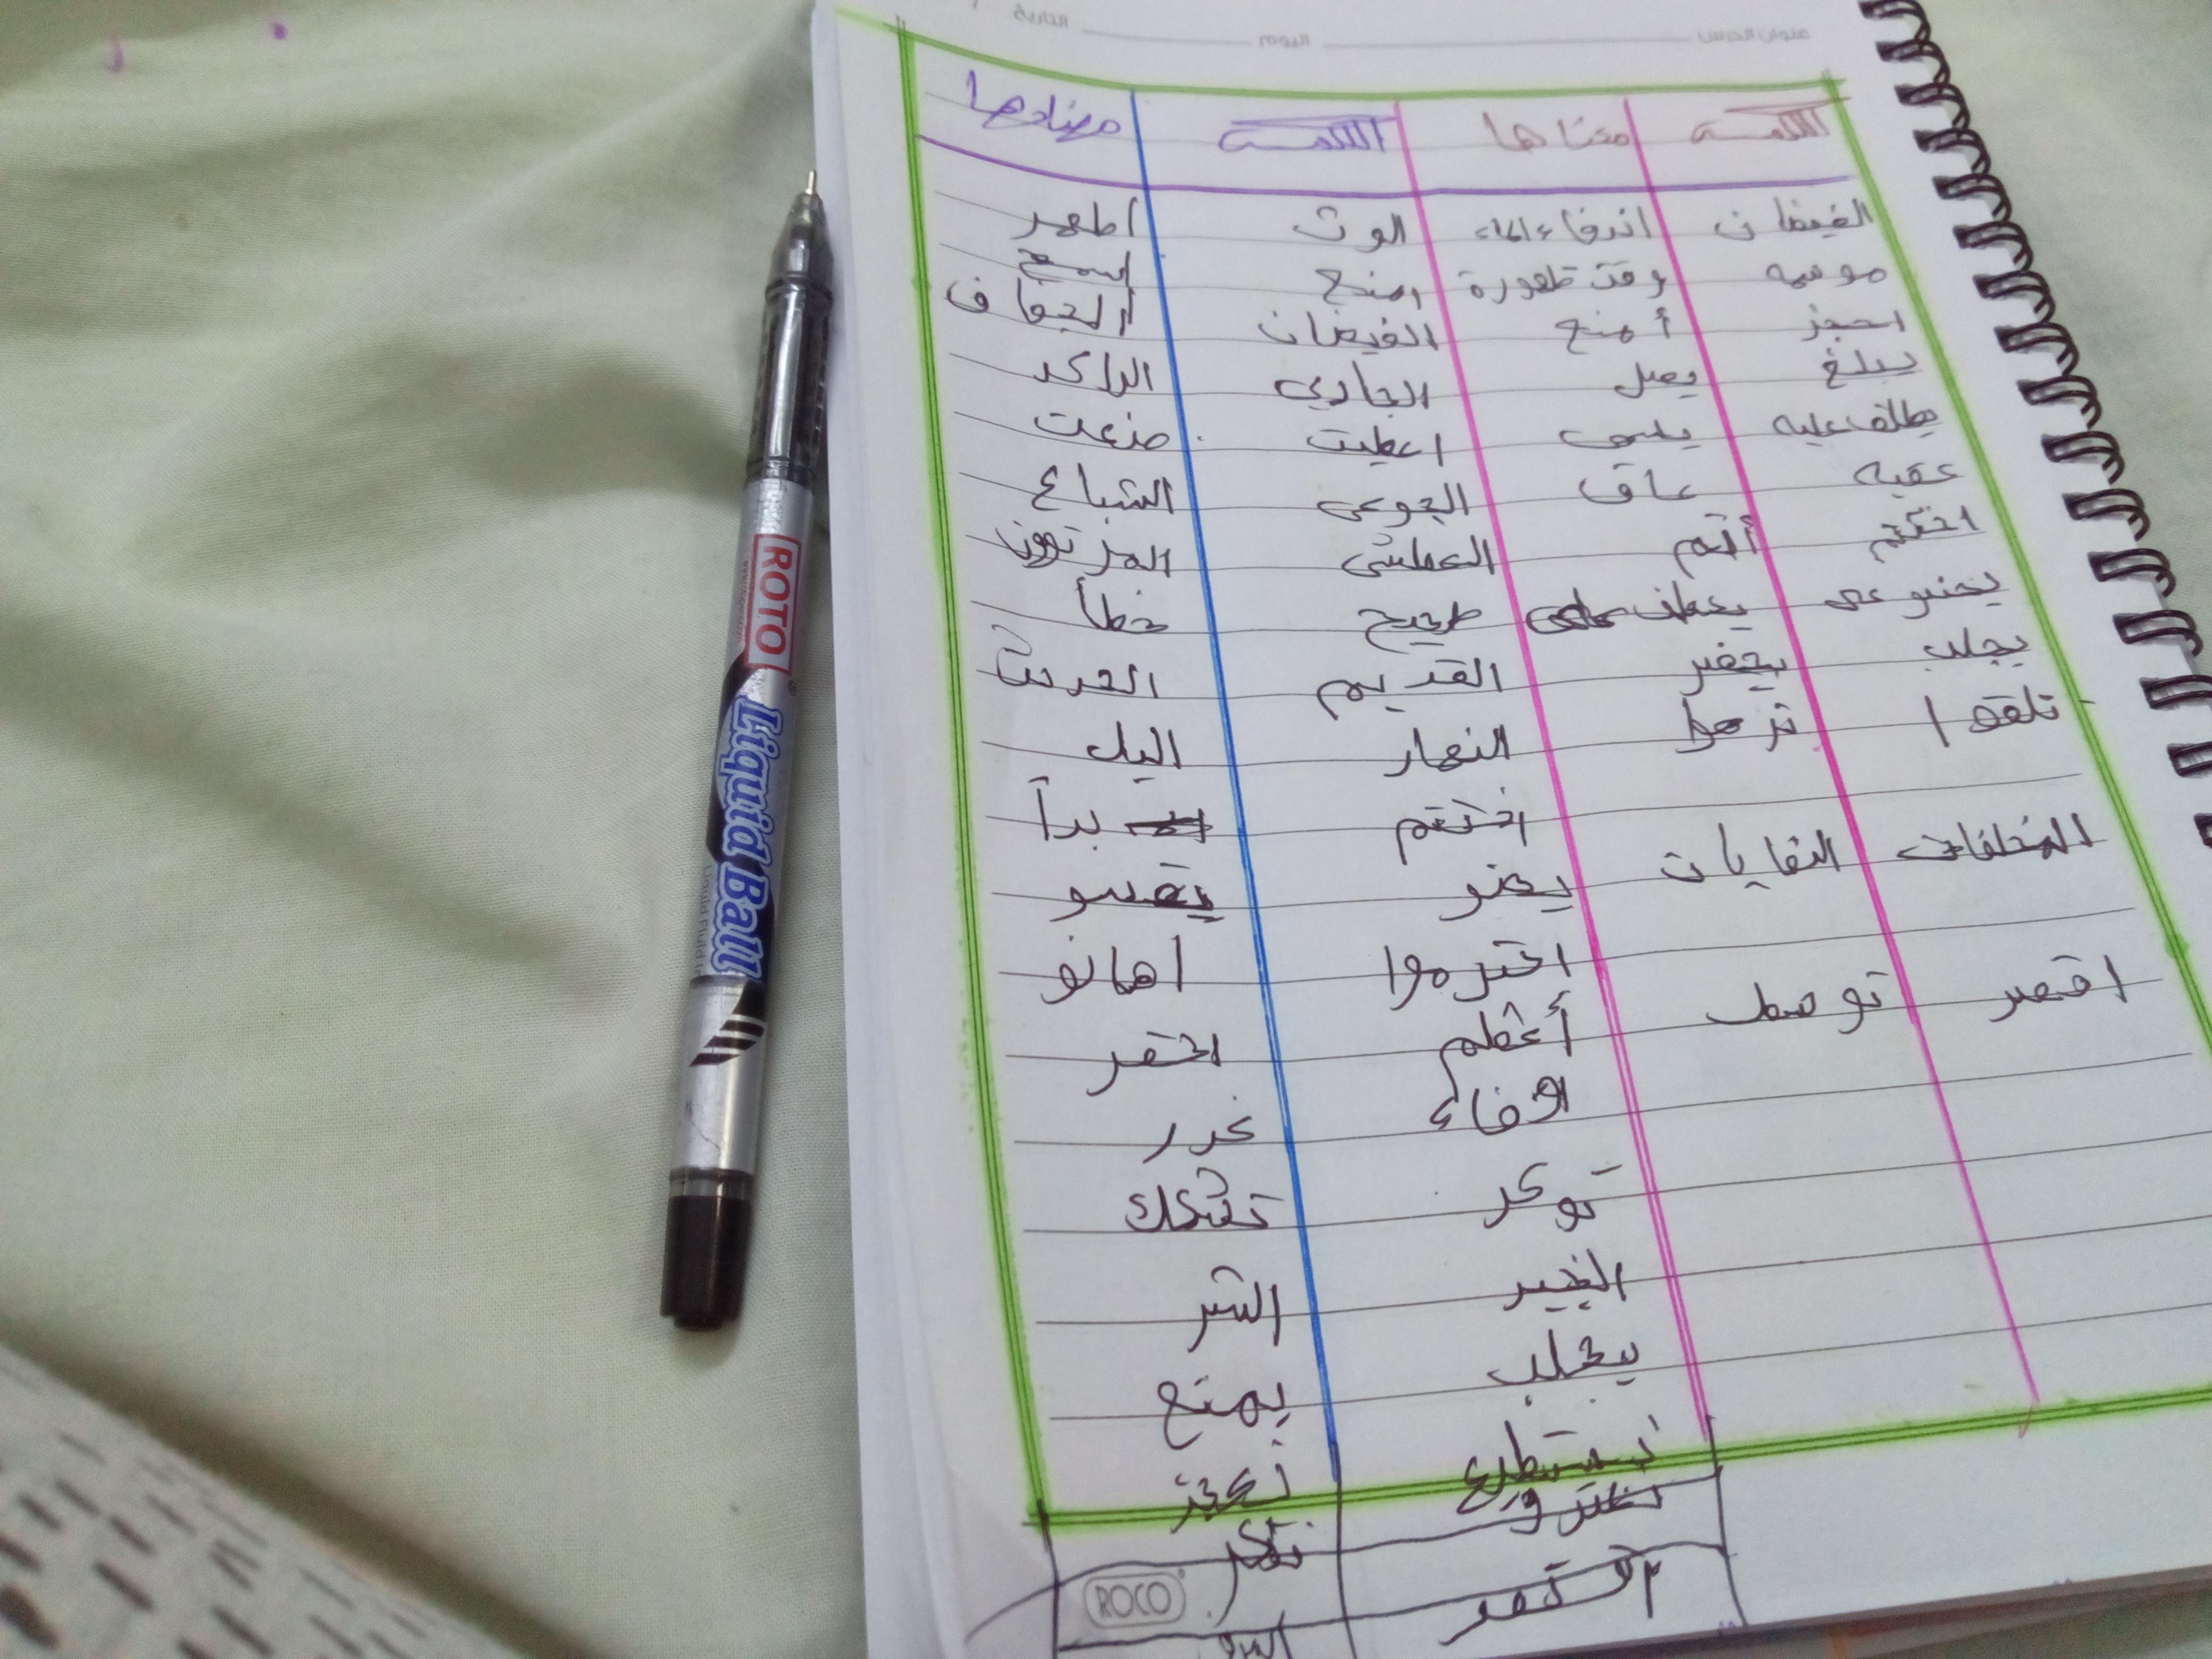 عنوان الدرس اليوم التاريخ
الكلمة معناها الكلمة مضادها
الفيضان اندفاع الماء الوث اطهر
موسمه وقت ظهورة امنح اسمح
احجز أمنع الفيضان الجفاف
يبلغ يصل الجاري الراكد
يطلق عليه يسمى اعطيت منعت
عقبه عاق الجوعى الشباع
اختتم أتم العطشى المرتوون
يحنو على يعطف على صحيح خطأ
يجلب يحضر القديم الحديث
تلفوا النهار اليل
اختتم بدأ
المخلفات النفايات يحنو يقسو
احترموا اهانو
اقصر توصط أعظم احقر
الوفاء غدر
الخير الشر
يجلب يمنع
نستطيع نعجز
ROCO
ROTO
Liquid Ball